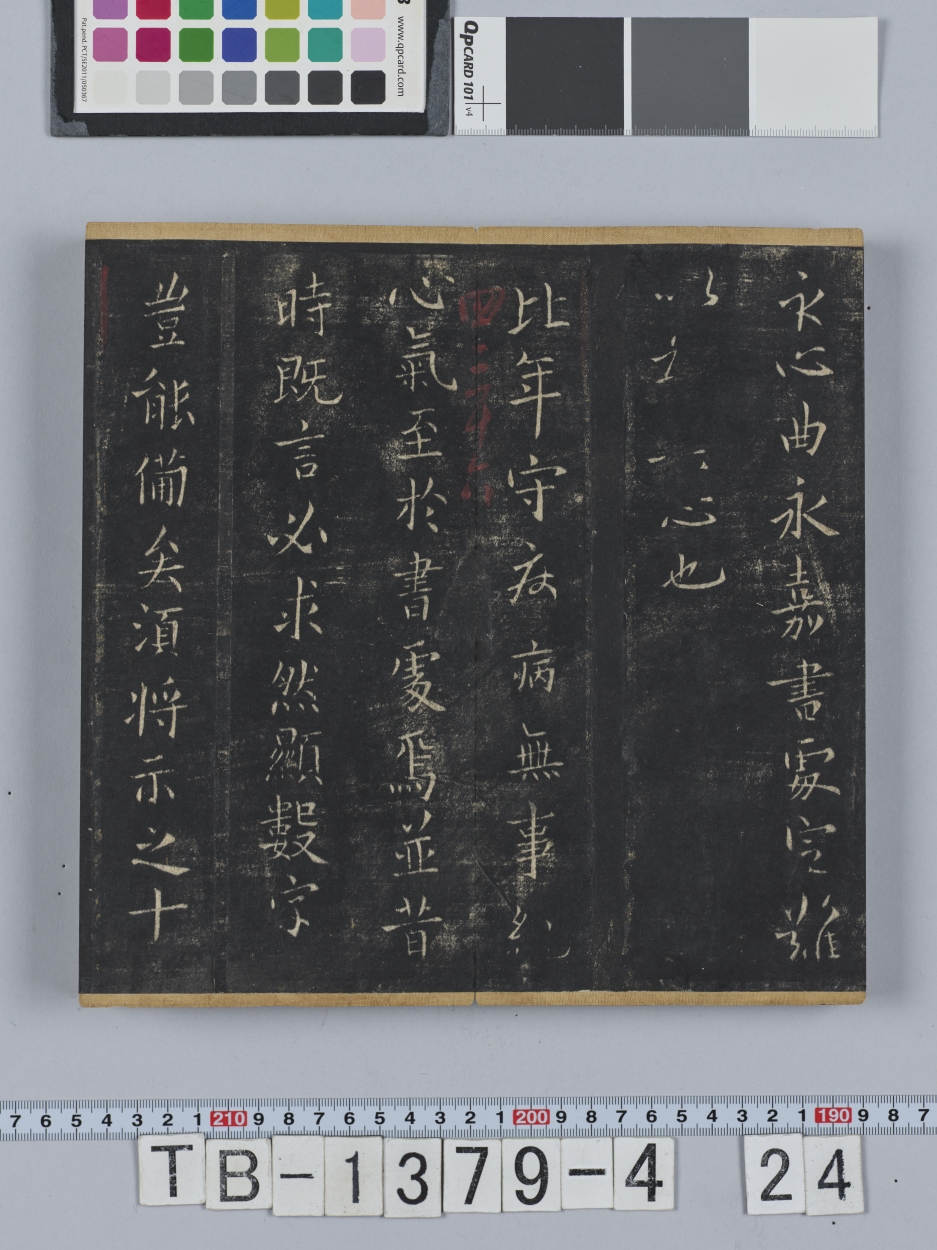 永心曲永嘉書處定難
以心也
比年守疾病無事紀
心氣至於書處焉並昔
時既言必求然顯數字
豈能備矣須將示之十
www.qpcard.com
QPCARD 101 v4
7 6 5 4 3 2 1 210 9 8 7 6 5 4 3 2 1 200 9 8 7 6 5 4 3 2 1 190 9 8 7
TB-1379-4 24